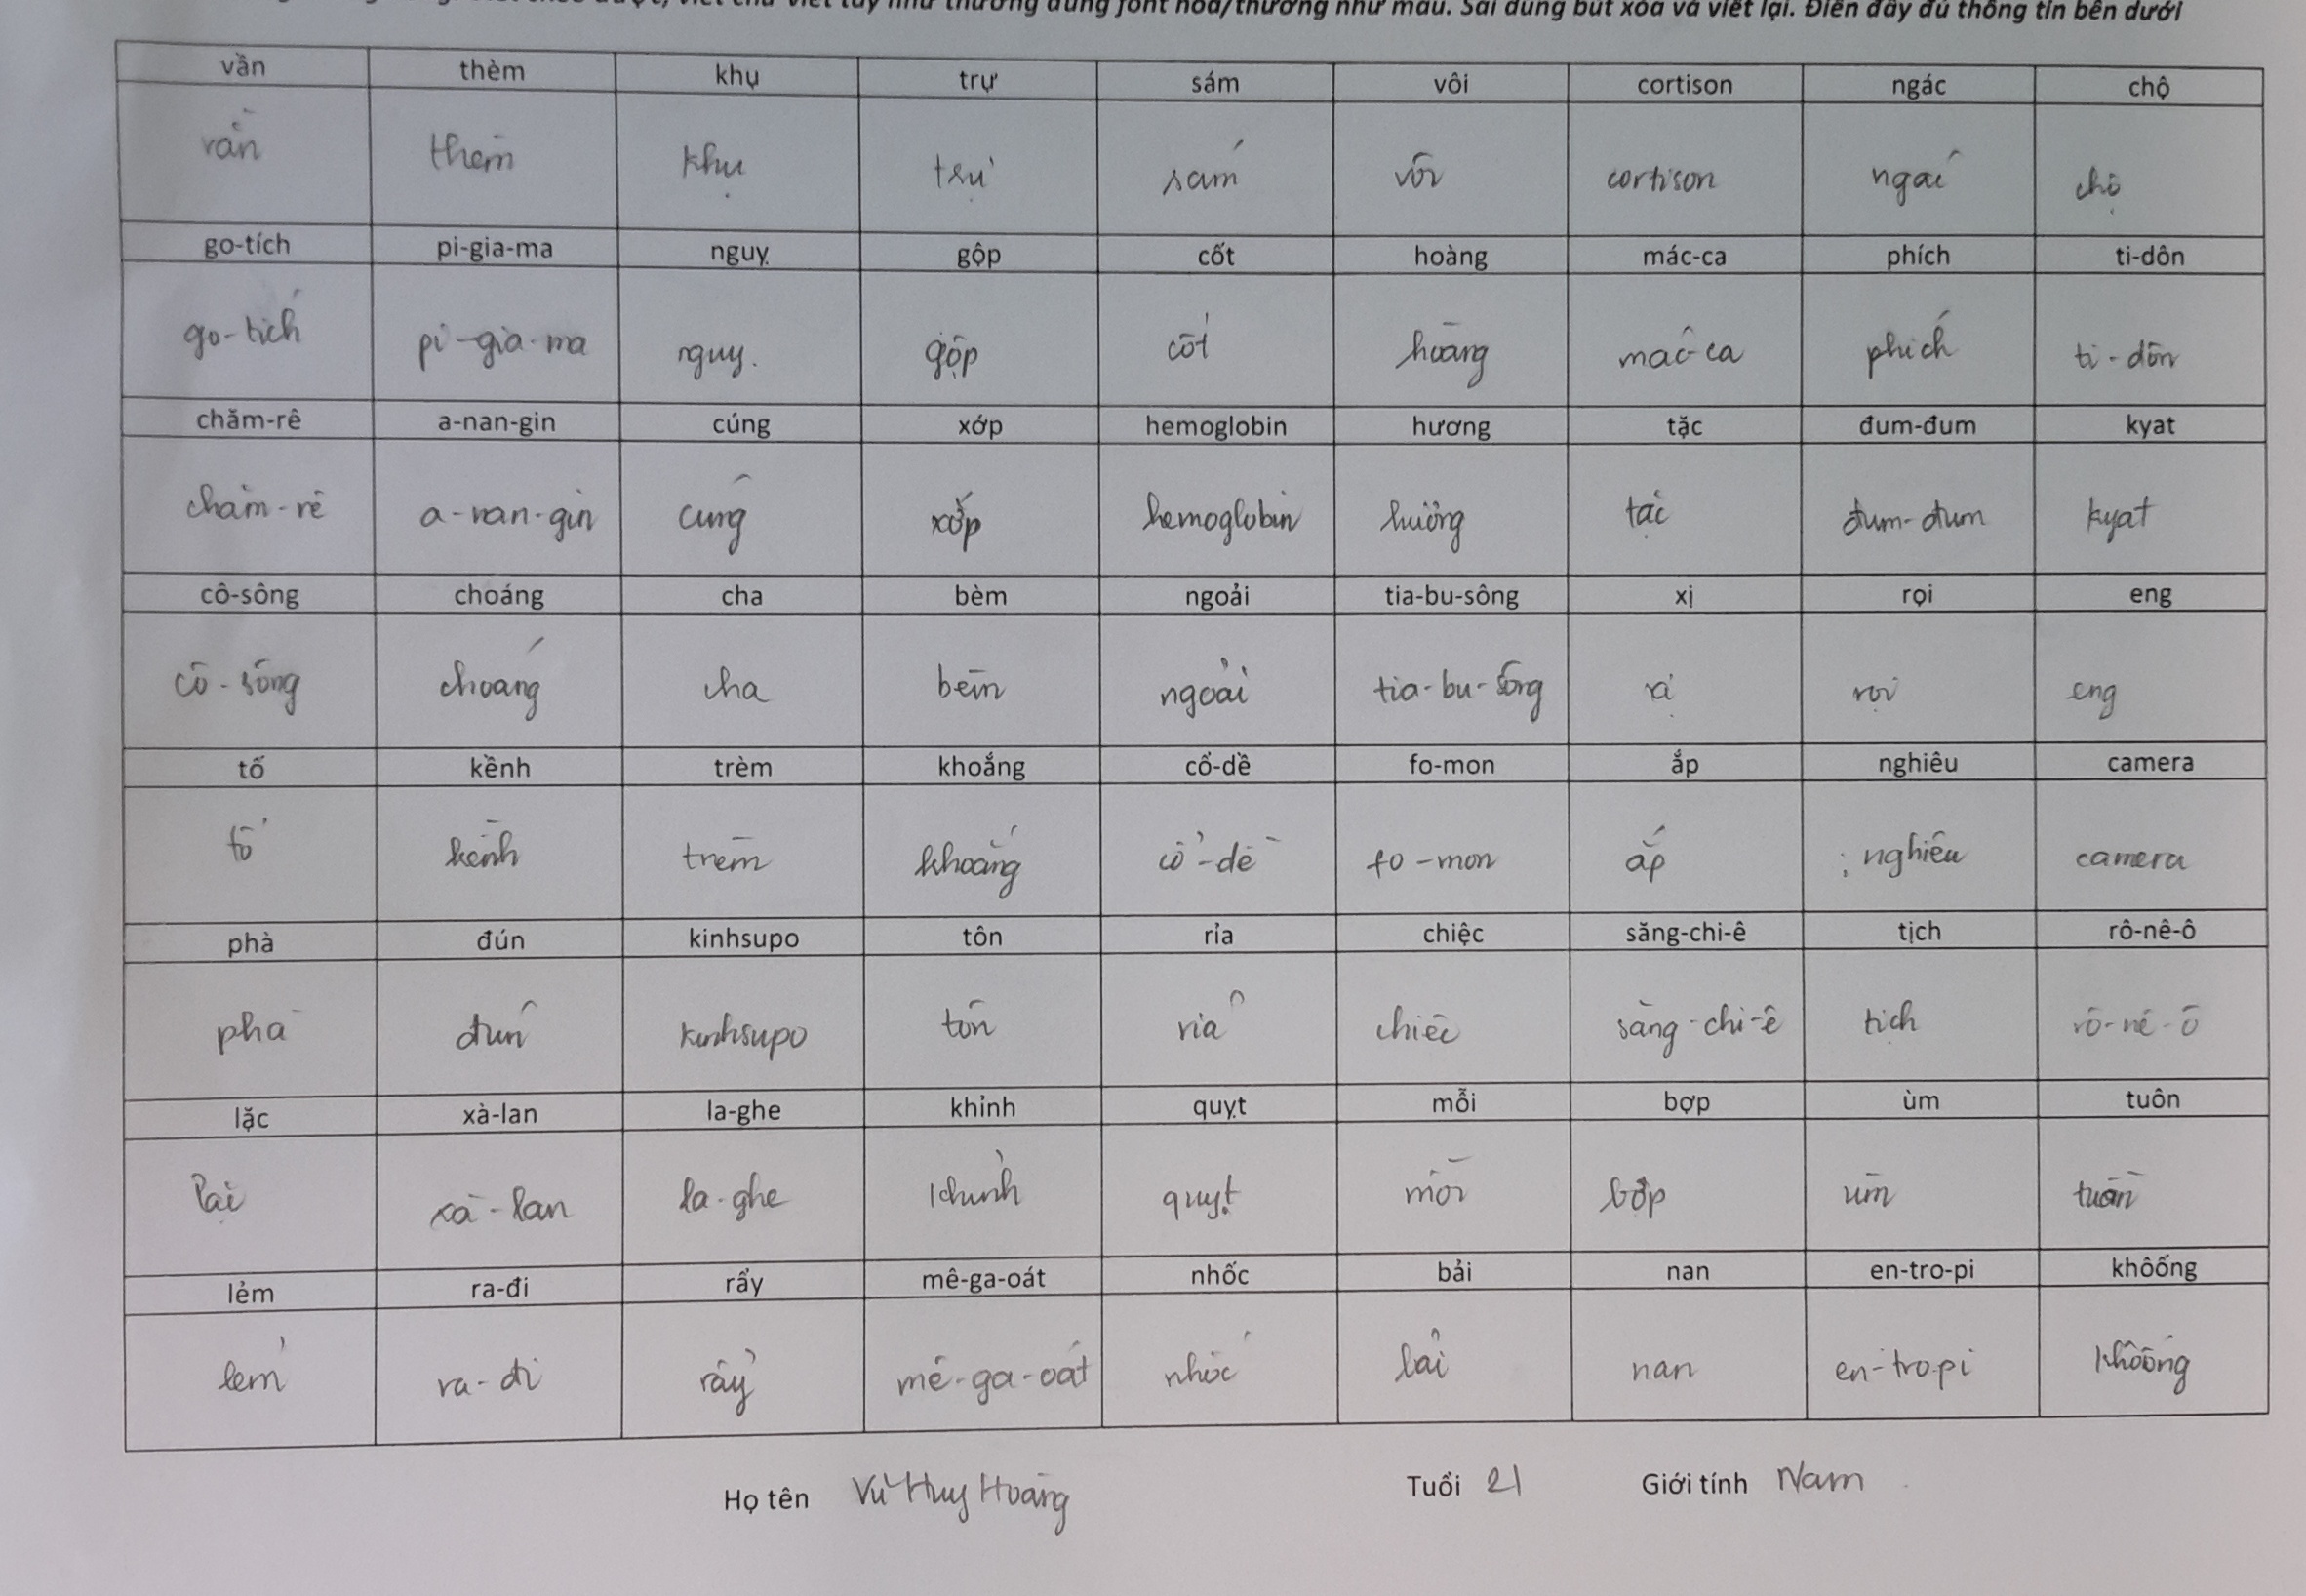 viết chữ viết tay như thường dùng font hoa/thường như mẫu. Sai dùng bút xóa và viết lại. Điền đầy đủ thông tin bên dưới
vần thèm khụ trự sám vôi cortison ngác chộ
vần thèm khụ trự sám vôi cortison ngác chộ
go-tích pi-gia-ma nguỵ gộp cốt hoàng mác-ca phích ti-dôn
go-tích pi-gia-ma nguỵ gộp cốt hoàng mác-ca phích ti-dôn
chăm-rê a-nan-gin cúng xớp hemoglobin hương tặc đum-đum kyat
chăm-rê a-nan-gin cúng xớp hemoglobin hương tặc đum-đum kyat
cô-sông choáng cha bèm ngoải tia-bu-sông xị rọi eng
cô-sông choáng cha bèm ngoải tia-bu-sông xị rọi eng
tố kềnh trèm khoắng cổ-dề fo-mon ắp nghiêu camera
tố kềnh trèm khoắng cổ-dề fo-mon ắp nghiêu camera
phà đún kinhsupo tôn rỉa chiệc săng-chi-ê tịch rô-nê-ô
phà đún kinhsupo tôn rỉa chiếc săng-chi-ê tịch rô-nê-ô
lặc xà-lan la-ghe khỉnh quỵt mỗi bợp ùm tuôn
lặc xà-lan la-ghe khỉnh quỵt mỗi bợp ùm tuôn
lẻm ra-đi rẩy mê-ga-oát nhốc bải nan en-tro-pi khôống
lẻm ra-đi rẩy mê-ga-oát nhốc bải nan en-tro-pi khôống
Họ tên Vũ Huy Hoàng Tuổi 21 Giới tính Nam